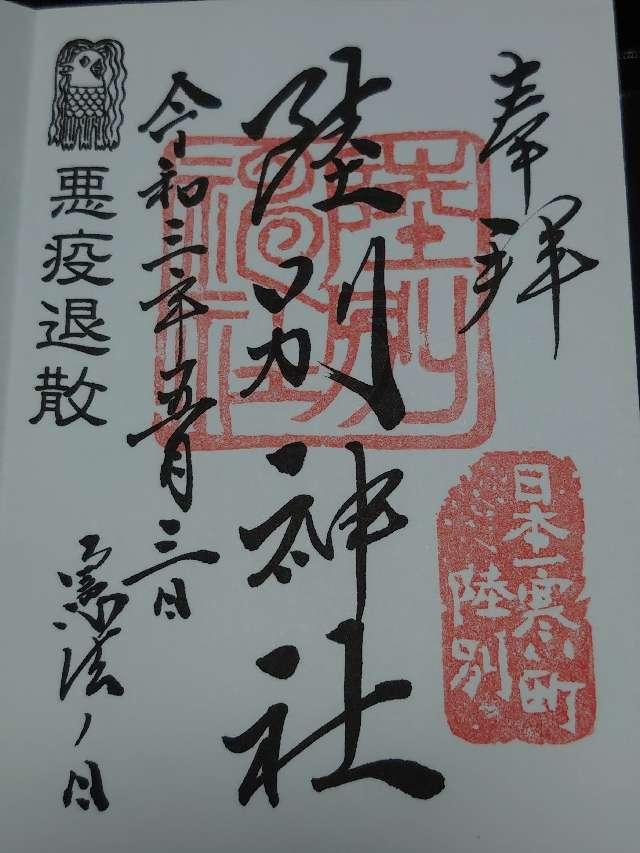 奉拝
日本一寒い町
陸別
陸別神社
陸別神社
令和三年五月三日
憲法ノ日
悪疫退散